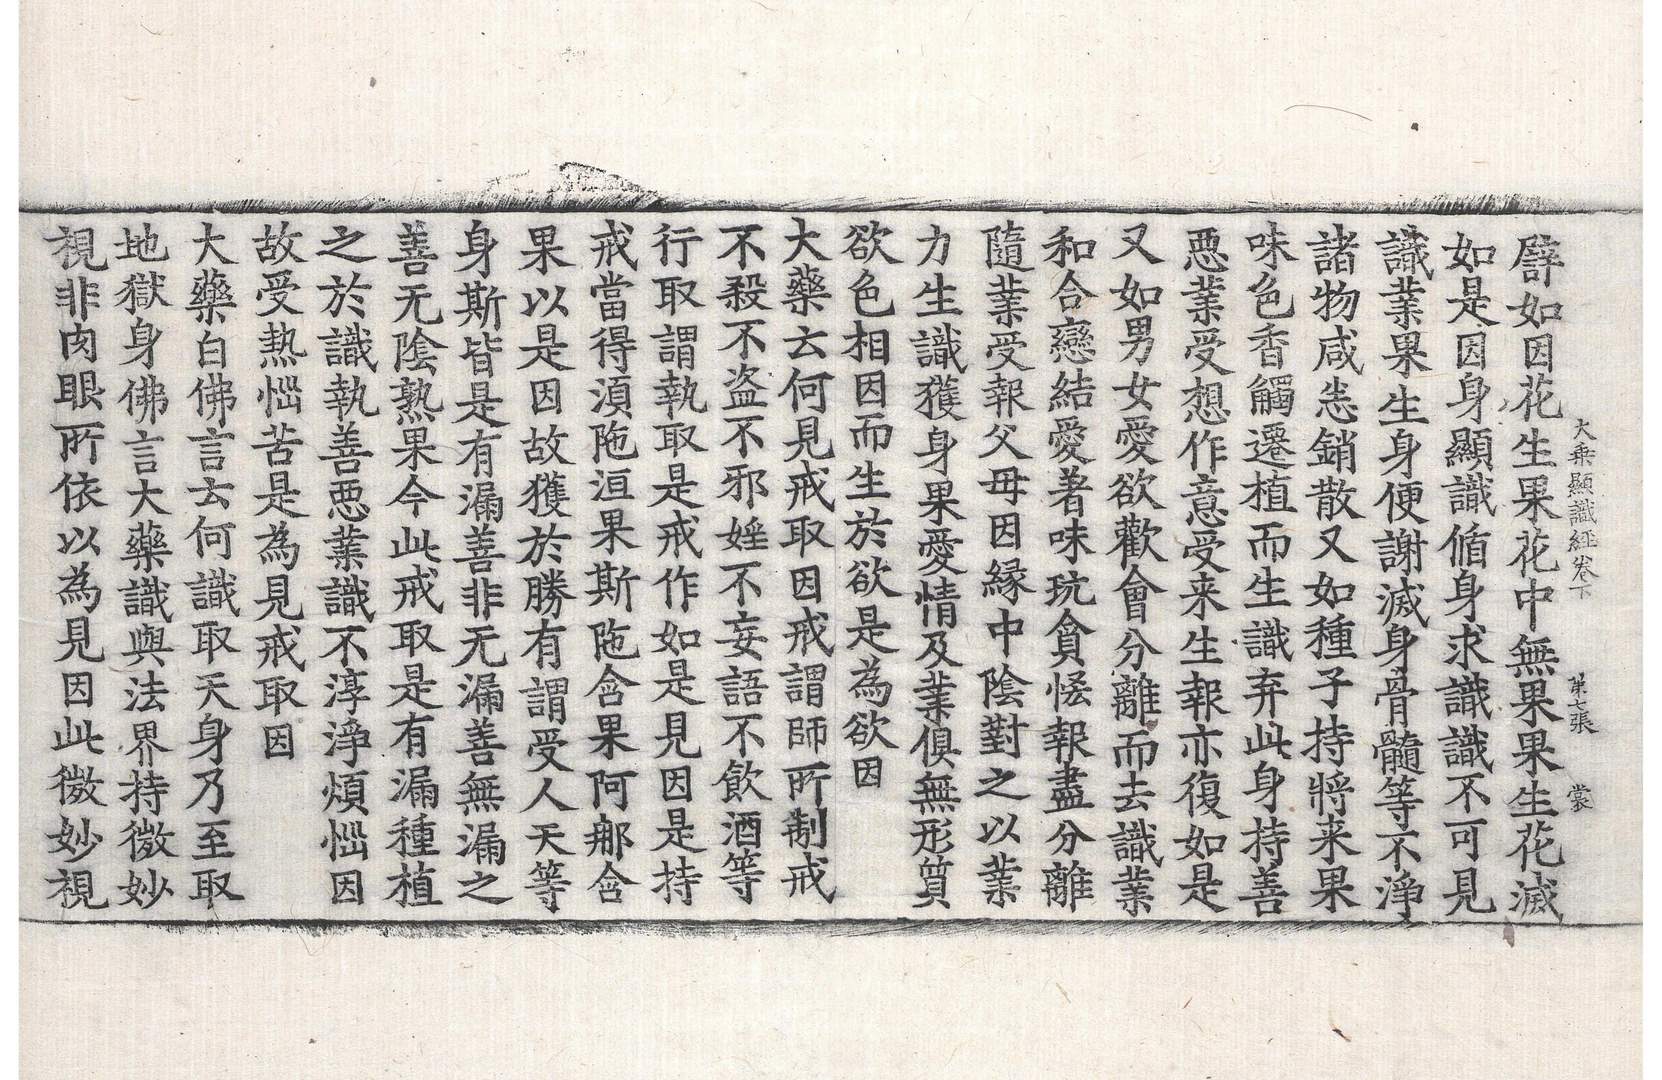 大乗顯識経卷下 第七張 裳
譬如因花生果花中無果果生花滅
如是因身顯識循身求識識不可見
識業果生身便謝滅身骨髓等不淨
諸物咸恙銷散又如種子持將来果
味色香觸遷植而生識弃此身持善
惡業受想作意受来生報亦復如是
又如男女愛欲歡會分離而去識業
和合戀結愛著味玩貪悋報盡分離
隨業受報父母因縁中陰對之以業
力生識獲身果愛情及業俱無形質
欲色相因而生於欲是為欲因
大藥云何見戒取因戒謂師所制戒
不殺不盗不邪婬不妄語不飲酒等
行取謂執取是戒作如是見因是持
戒當得湏陁洹果斯陁含果阿那含
果以是因故獲於勝有謂受人天等
身斯皆是有漏善非无漏善無漏之
善无陰熟果今此戒取是有漏種植
之於識執善惡業識不淳淨煩惱因
故受熱惱苦是為見戒取因
大藥白佛言云何識取天身乃至取
地獄身佛言大藥識與法界持微妙
視非肉眼所依以為見因此微妙視